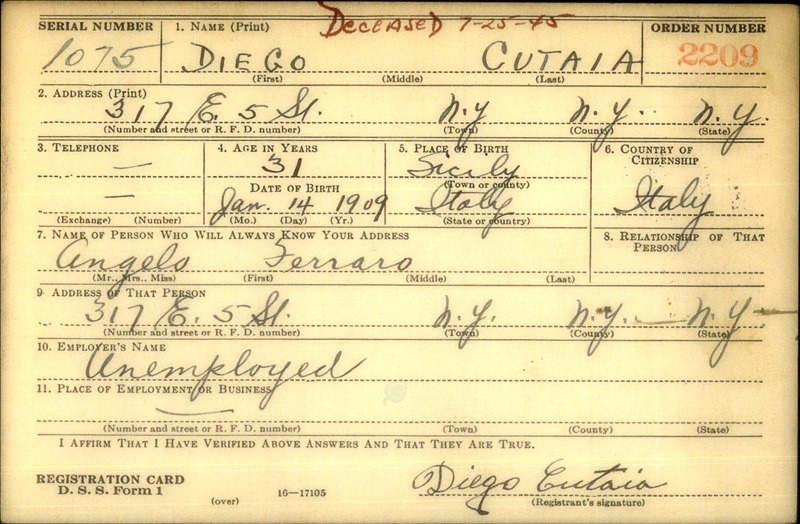 DECEASED 7-25-45
SERIAL NUMBER 1. NAME (Print) ORDER NUMBER
1075 DIEGO CUTAIA 2209
(First) (Middle) (Last)
2. ADDRESS (Print)
317 E. 5 St. N.Y N.Y. N.Y.
(Number and street or R. F. D. number) (Town) (County) (State)
3. TELEPHONE 4. AGE IN YEARS 5. PLACE OF BIRTH 6. COUNTRY OF CITIZENSHIP
— 31 Sicily
DATE OF BIRTH (Town or county)
— Jan. 14 1909 Italy Italy
(Exchange) (Number) (Mo.) (Day) (Yr.) (State or country)
7. NAME OF PERSON WHO WILL ALWAYS KNOW YOUR ADDRESS 8. RELATIONSHIP OF THAT PERSON
Angelo Ferraro
(Mr., Mrs., Miss) (First) (Middle) (Last)
9. ADDRESS OF THAT PERSON
317 E. 5 St. N.Y. N.Y. — N.Y —
(Number and street or R. F. D. number) (Town) (County) (State)
10. EMPLOYER'S NAME
Unemployed
11. PLACE OF EMPLOYMENT OR BUSINESS
—
(Number and street or R. F. D. number) (Town) (County) (State)
I AFFIRM THAT I HAVE VERIFIED ABOVE ANSWERS AND THAT THEY ARE TRUE.
REGISTRATION CARD Diego Cutaia
D. S. S. Form 1 (over) 16—17105 (Registrant's signature)